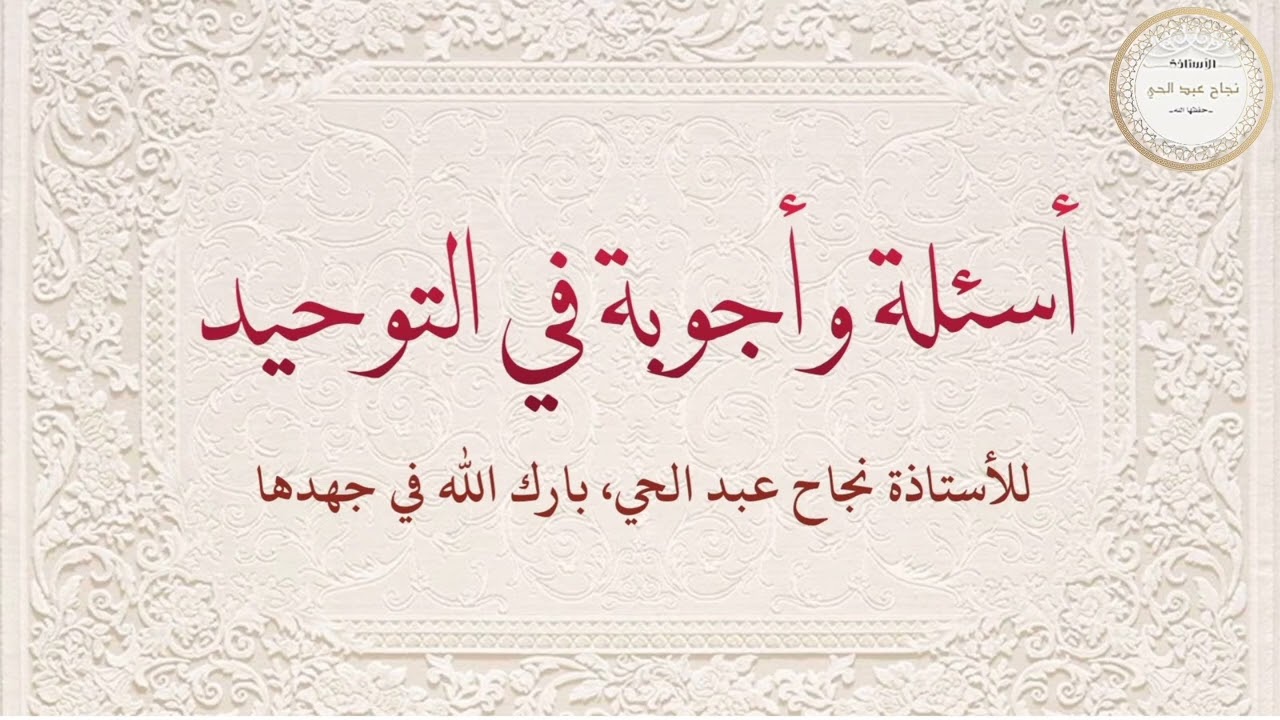 الأستاذة
نجاح عبد الحي
-حفظها الله-
أسئلة وأجوبة في التوحيد
للأستاذة نجاح عبد الحي، بارك الله في جهدها